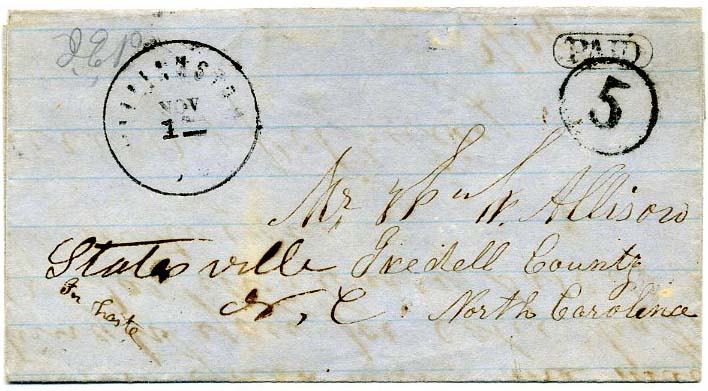 PAID
WILLIAMSTON
NOV
1
5
Mr, Wm W. Allison
Statesville Iredell County
In haste
N, C. North Carolina